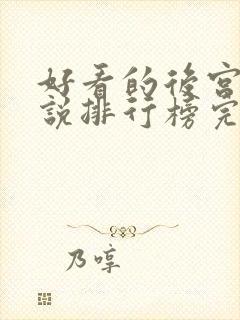 好看的後宮
說排行榜完
乃啍